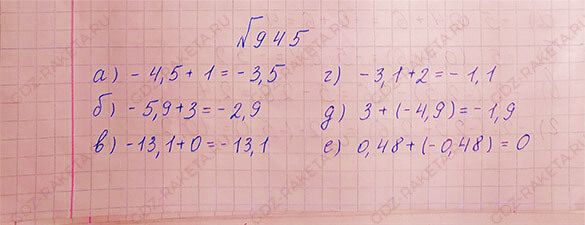 №945
а) - 4,5 + 1 = - 3,5
б) - 5,9 + 3 = - 2,9
в) - 13,1 + 0 = - 13,1
г) - 3,1 + 2 = - 1,1
д) 3 + (- 4,9) = - 1,9
е) 0,48 + (- 0,48) = 0